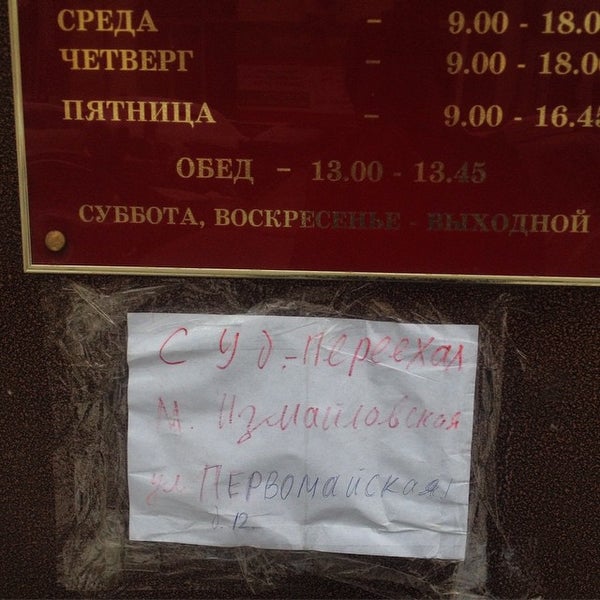 СРЕДА - 9.00 - 18.0
ЧЕТВЕРГ - 9.00 - 18.00
ПЯТНИЦА - 9.00 - 16.45
ОБЕД - 13.00 - 13.45
СУББОТА, ВОСКРЕСЕНЬЕ - ВЫХОДНОЙ
СУд.-Переехал
М. Измайловская
ул. ПЕРВОМАЙСКАЯ
д. 12